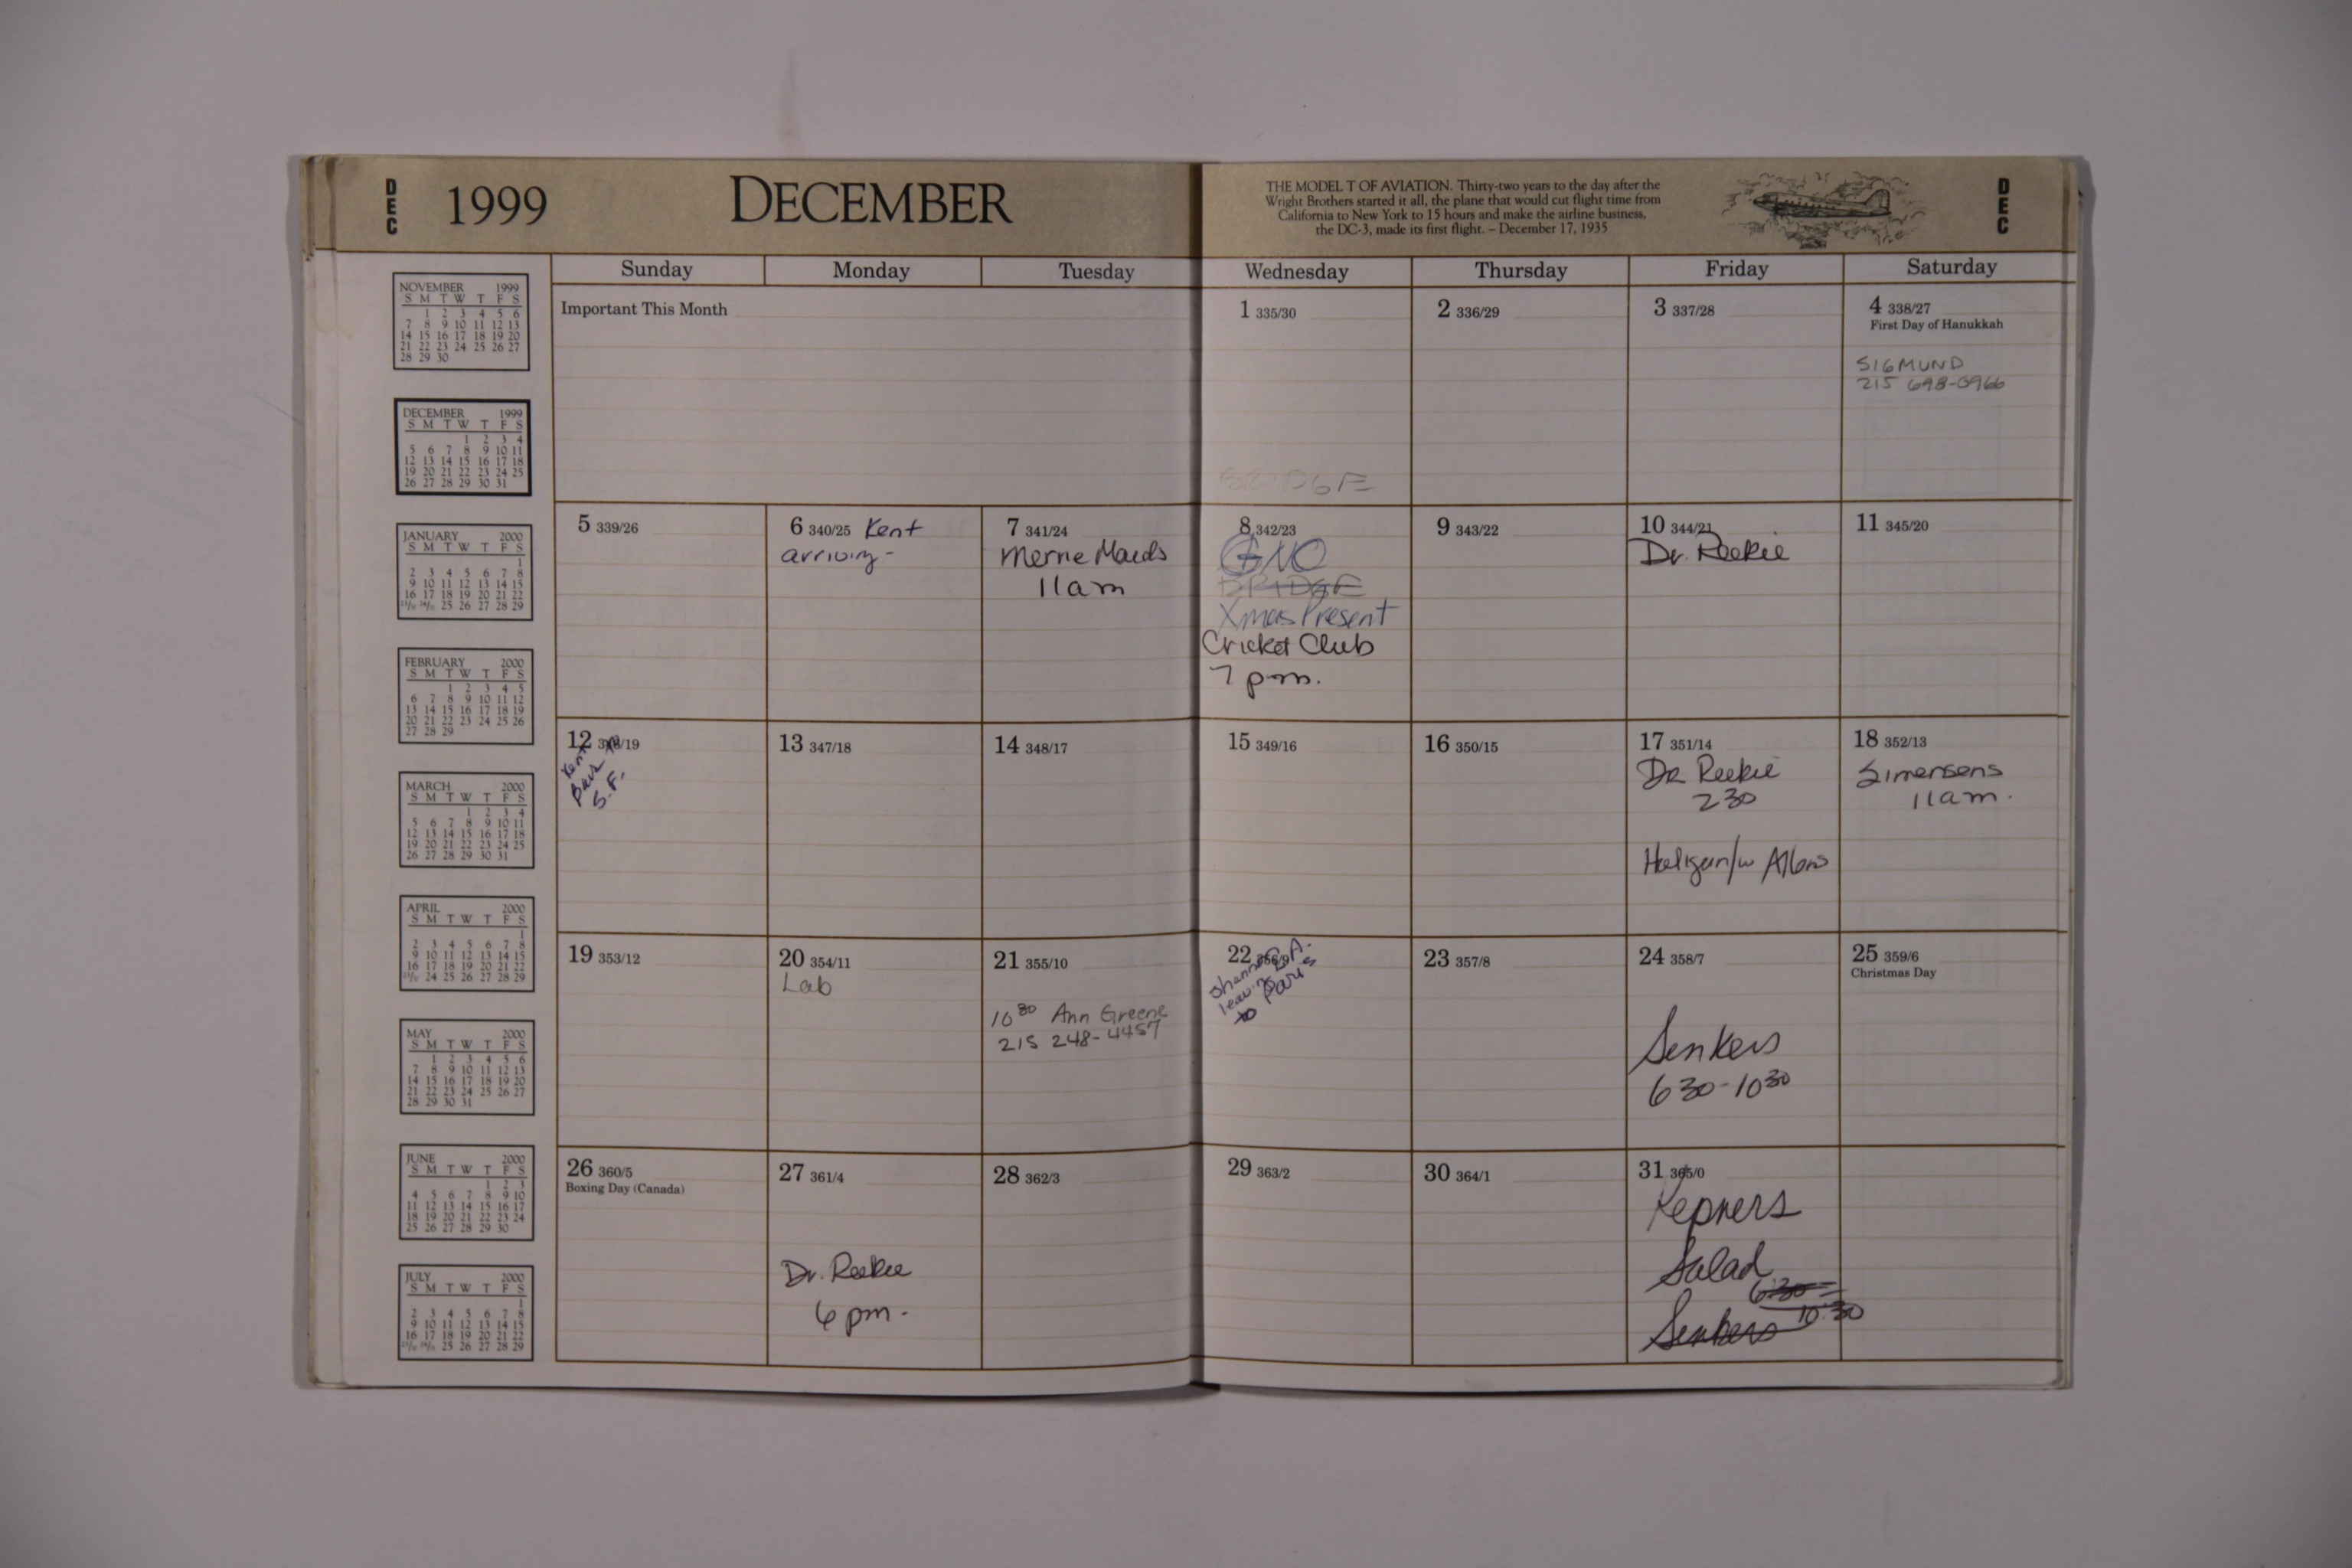 DEC
1999
DECEMBER
THE MODEL T OF AVIATION. Thirty-two years to the day after the
Wright Brothers started it all, the plane that would cut flight time from
California to New York to 15 hours and make the airline business,
the DC-3, made its first flight. – December 17, 1935
DEC
Sunday Monday Tuesday Wednesday Thursday Friday Saturday
NOVEMBER 1999
S M T W T F S
1 2 3 4 5 6
7 8 9 10 11 12 13
14 15 16 17 18 19 20
21 22 23 24 25 26 27
28 29 30
DECEMBER 1999
S M T W T F S
1 2 3 4
5 6 7 8 9 10 11
12 13 14 15 16 17 18
19 20 21 22 23 24 25
26 27 28 29 30 31
JANUARY 2000
S M T W T F S
1
2 3 4 5 6 7 8
9 10 11 12 13 14 15
16 17 18 19 20 21 22
23/30 24/31 25 26 27 28 29
FEBRUARY 2000
S M T W T F S
1 2 3 4 5
6 7 8 9 10 11 12
13 14 15 16 17 18 19
20 21 22 23 24 25 26
27 28 29
MARCH 2000
S M T W T F S
1 2 3 4
5 6 7 8 9 10 11
12 13 14 15 16 17 18
19 20 21 22 23 24 25
26 27 28 29 30 31
APRIL 2000
S M T W T F S
1
2 3 4 5 6 7 8
9 10 11 12 13 14 15
16 17 18 19 20 21 22
23/30 24 25 26 27 28 29
MAY 2000
S M T W T F S
1 2 3 4 5 6
7 8 9 10 11 12 13
14 15 16 17 18 19 20
21 22 23 24 25 26 27
28 29 30 31
JUNE 2000
S M T W T F S
1 2 3
4 5 6 7 8 9 10
11 12 13 14 15 16 17
18 19 20 21 22 23 24
25 26 27 28 29 30
JULY 2000
S M T W T F S
1
2 3 4 5 6 7 8
9 10 11 12 13 14 15
16 17 18 19 20 21 22
23/30 24/31 25 26 27 28 29
Important This Month
1 335/30
BRIDGE
2 336/29
3 337/28
4 338/27
First Day of Hanukkah
SIGMUND
215 698-0966
5 339/26
6 340/25 Kent
arriving-
7 341/24
Merrie Maids
11am
8 342/23
GNO
BRIDGE
Xmas Present
Cricket Club
7 pm.
9 343/22
10 344/21
Dr. Reekie
11 345/20
12 346/19
Kent
back to
S.F.
13 347/18
14 348/17
15 349/16
16 350/15
17 351/14
Dr Reekie
230
/w
18 352/13
Simersens
11am.
19 353/12
20 354/11
Lab
21 355/10
10 30 Ann Greene
215 248-4457
22 356/9
leaving
to Paris
23 357/8
24 358/7
Senkers
6 30-10 30
25 359/6
Christmas Day
26 360/5
Boxing Day (Canada)
27 361/4
Dr. Reekie
6 pm.
28 362/3
29 363/2
30 364/1
31 365/0
Kepners
Salad
6:30-
10:30
Senkers